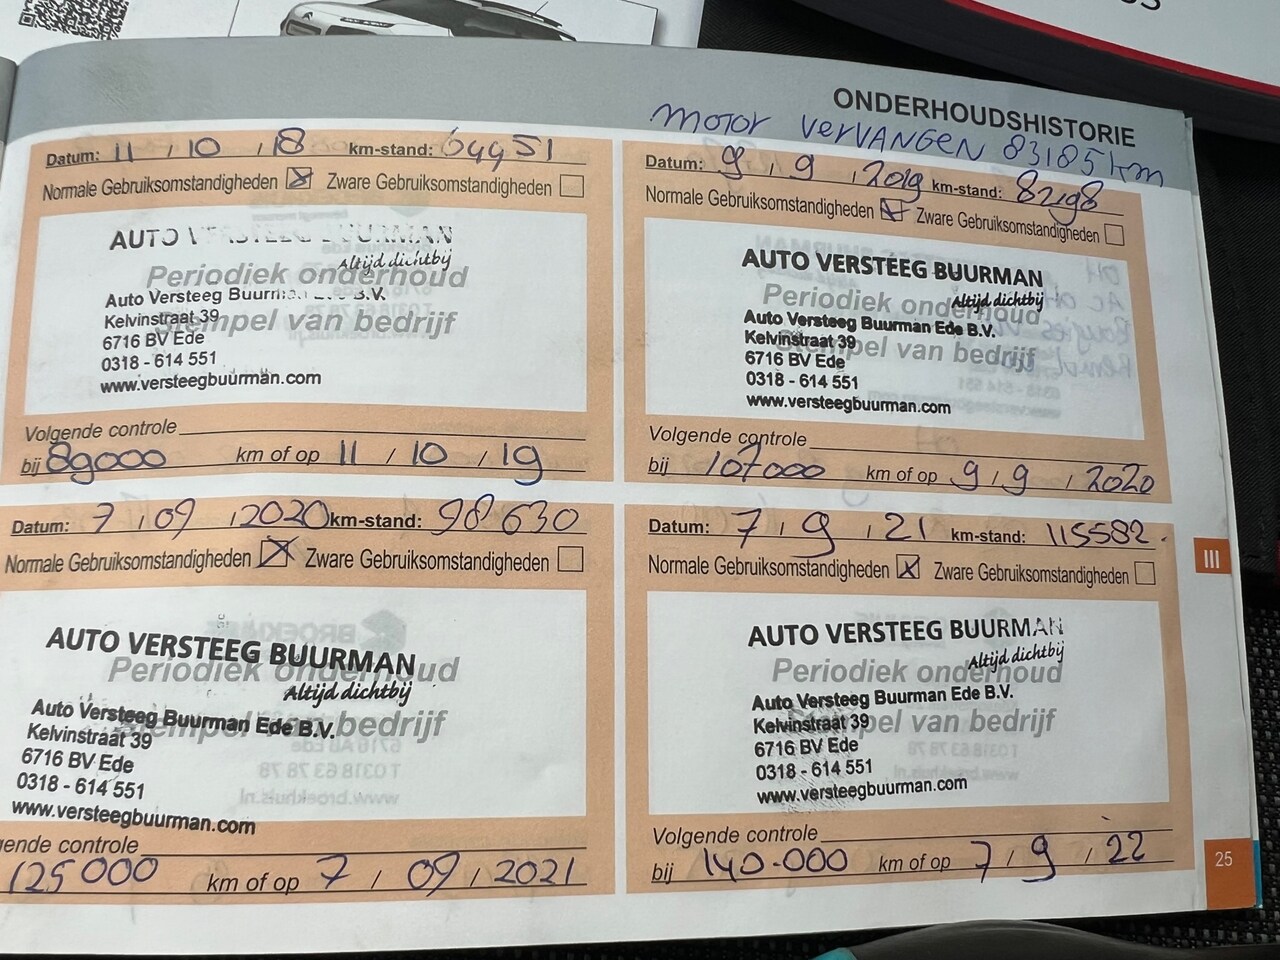 ONDERHOUDSHISTORIE
motor vervangen 83185 km
Datum: 11 / 10 / 18 km-stand: 64451
Normale Gebruiksomstandigheden ☒ Zware Gebruiksomstandigheden ☐
AUTO VERSTEEG BUURMAN
Altijd dichtbij
Periodiek onderhoud
Auto Versteeg Buurman Ede B.V.
Kelvinstraat 39
Stempel van bedrijf
6716 BV Ede
0318 - 614 551
www.versteegbuurman.com
Volgende controle
bij 89000 km of op 11 / 10 / 19
Datum: 9 / 9 / 2019 km-stand: 82198
Normale Gebruiksomstandigheden ☒ Zware Gebruiksomstandigheden ☐
AUTO VERSTEEG BUURMAN
Altijd dichtbij
Periodiek onderhoud
Auto Versteeg Buurman Ede B.V.
Kelvinstraat 39
Stempel van bedrijf
6716 BV Ede
0318 - 614 551
www.versteegbuurman.com
Volgende controle
bij 107000 km of op 9 / 9 / 2020
Datum: 7 / 09 / 2020 km-stand: 98630
Normale Gebruiksomstandigheden ☒ Zware Gebruiksomstandigheden ☐
AUTO VERSTEEG BUURMAN
Periodiek onderhoud
Altijd dichtbij
Auto Versteeg Buurman Ede B.V.
Stempel van bedrijf
Kelvinstraat 39
6716 BV Ede
0318 - 614 551
www.versteegbuurman.com
gende controle
125000 km of op 7 / 09 / 2021
Datum: 7 / 9 / 21 km-stand: 115582.
Normale Gebruiksomstandigheden ☒ Zware Gebruiksomstandigheden ☐
AUTO VERSTEEG BUURMAN
Altijd dichtbij
Periodiek onderhoud
Auto Versteeg Buurman Ede B.V.
Kelvinstraat 39
Stempel van bedrijf
6716 BV Ede
0318 - 614 551
www.versteegbuurman.com
Volgende controle
bij 140.000 km of op 7 / 9 / 22
III
25